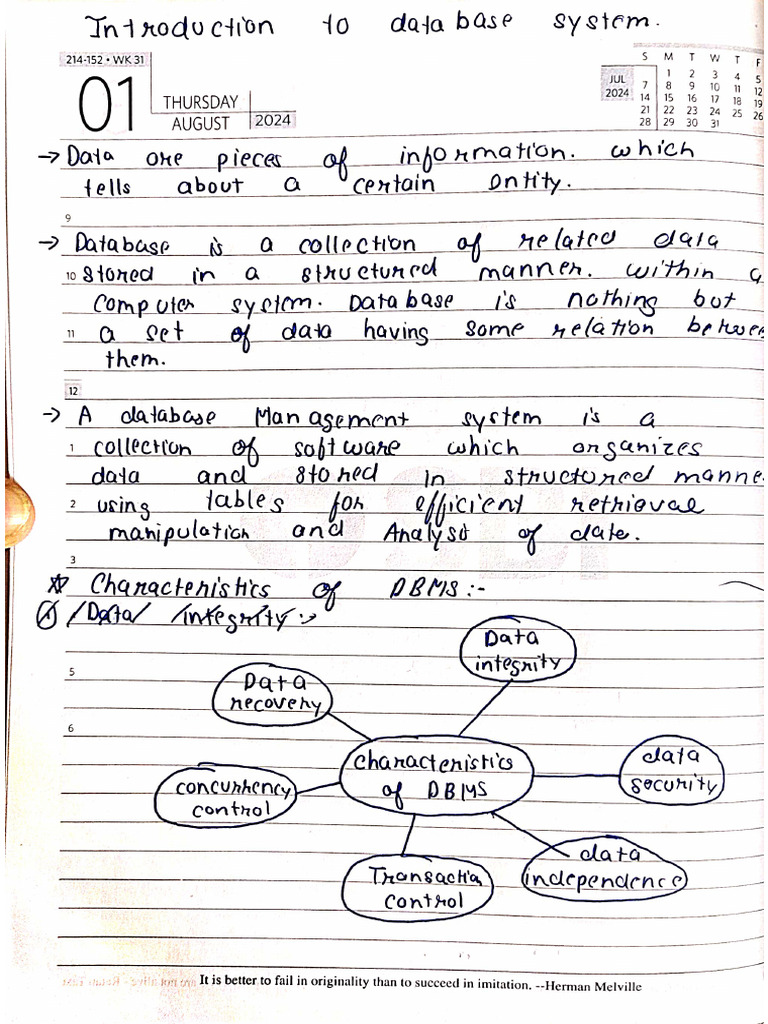 Introduction to database system.
214-152 • WK 31
01
THURSDAY
AUGUST 2024
JUL
2024
S M T W T F
1 2 3 4 5
7 8 9 10 11 12
14 15 16 17 18 19
21 22 23 24 25 26
28 29 30 31
→ Data are pieces of information. which
tells about a certain entity.
9
→ Database is a collection of related data
10 stored in a structured manner. within a
computer system. Database is nothing but
11 a set of data having some relation betwee
them.
12
→ A database Management system is a
1 collection of software which organizes
data and stored in structured manne
2 using tables for efficient retrieval
manipulation and Analyst of date.
3
☆ Characteristics of DBMS:-
Ⓐ Data integrity :-
Data
integrity
5
Data
recovery
6
characteristics
of DBMS
data
security
concurrency
control
data
independence
Transaction
control
It is better to fail in originality than to succeed in imitation. --Herman Melville